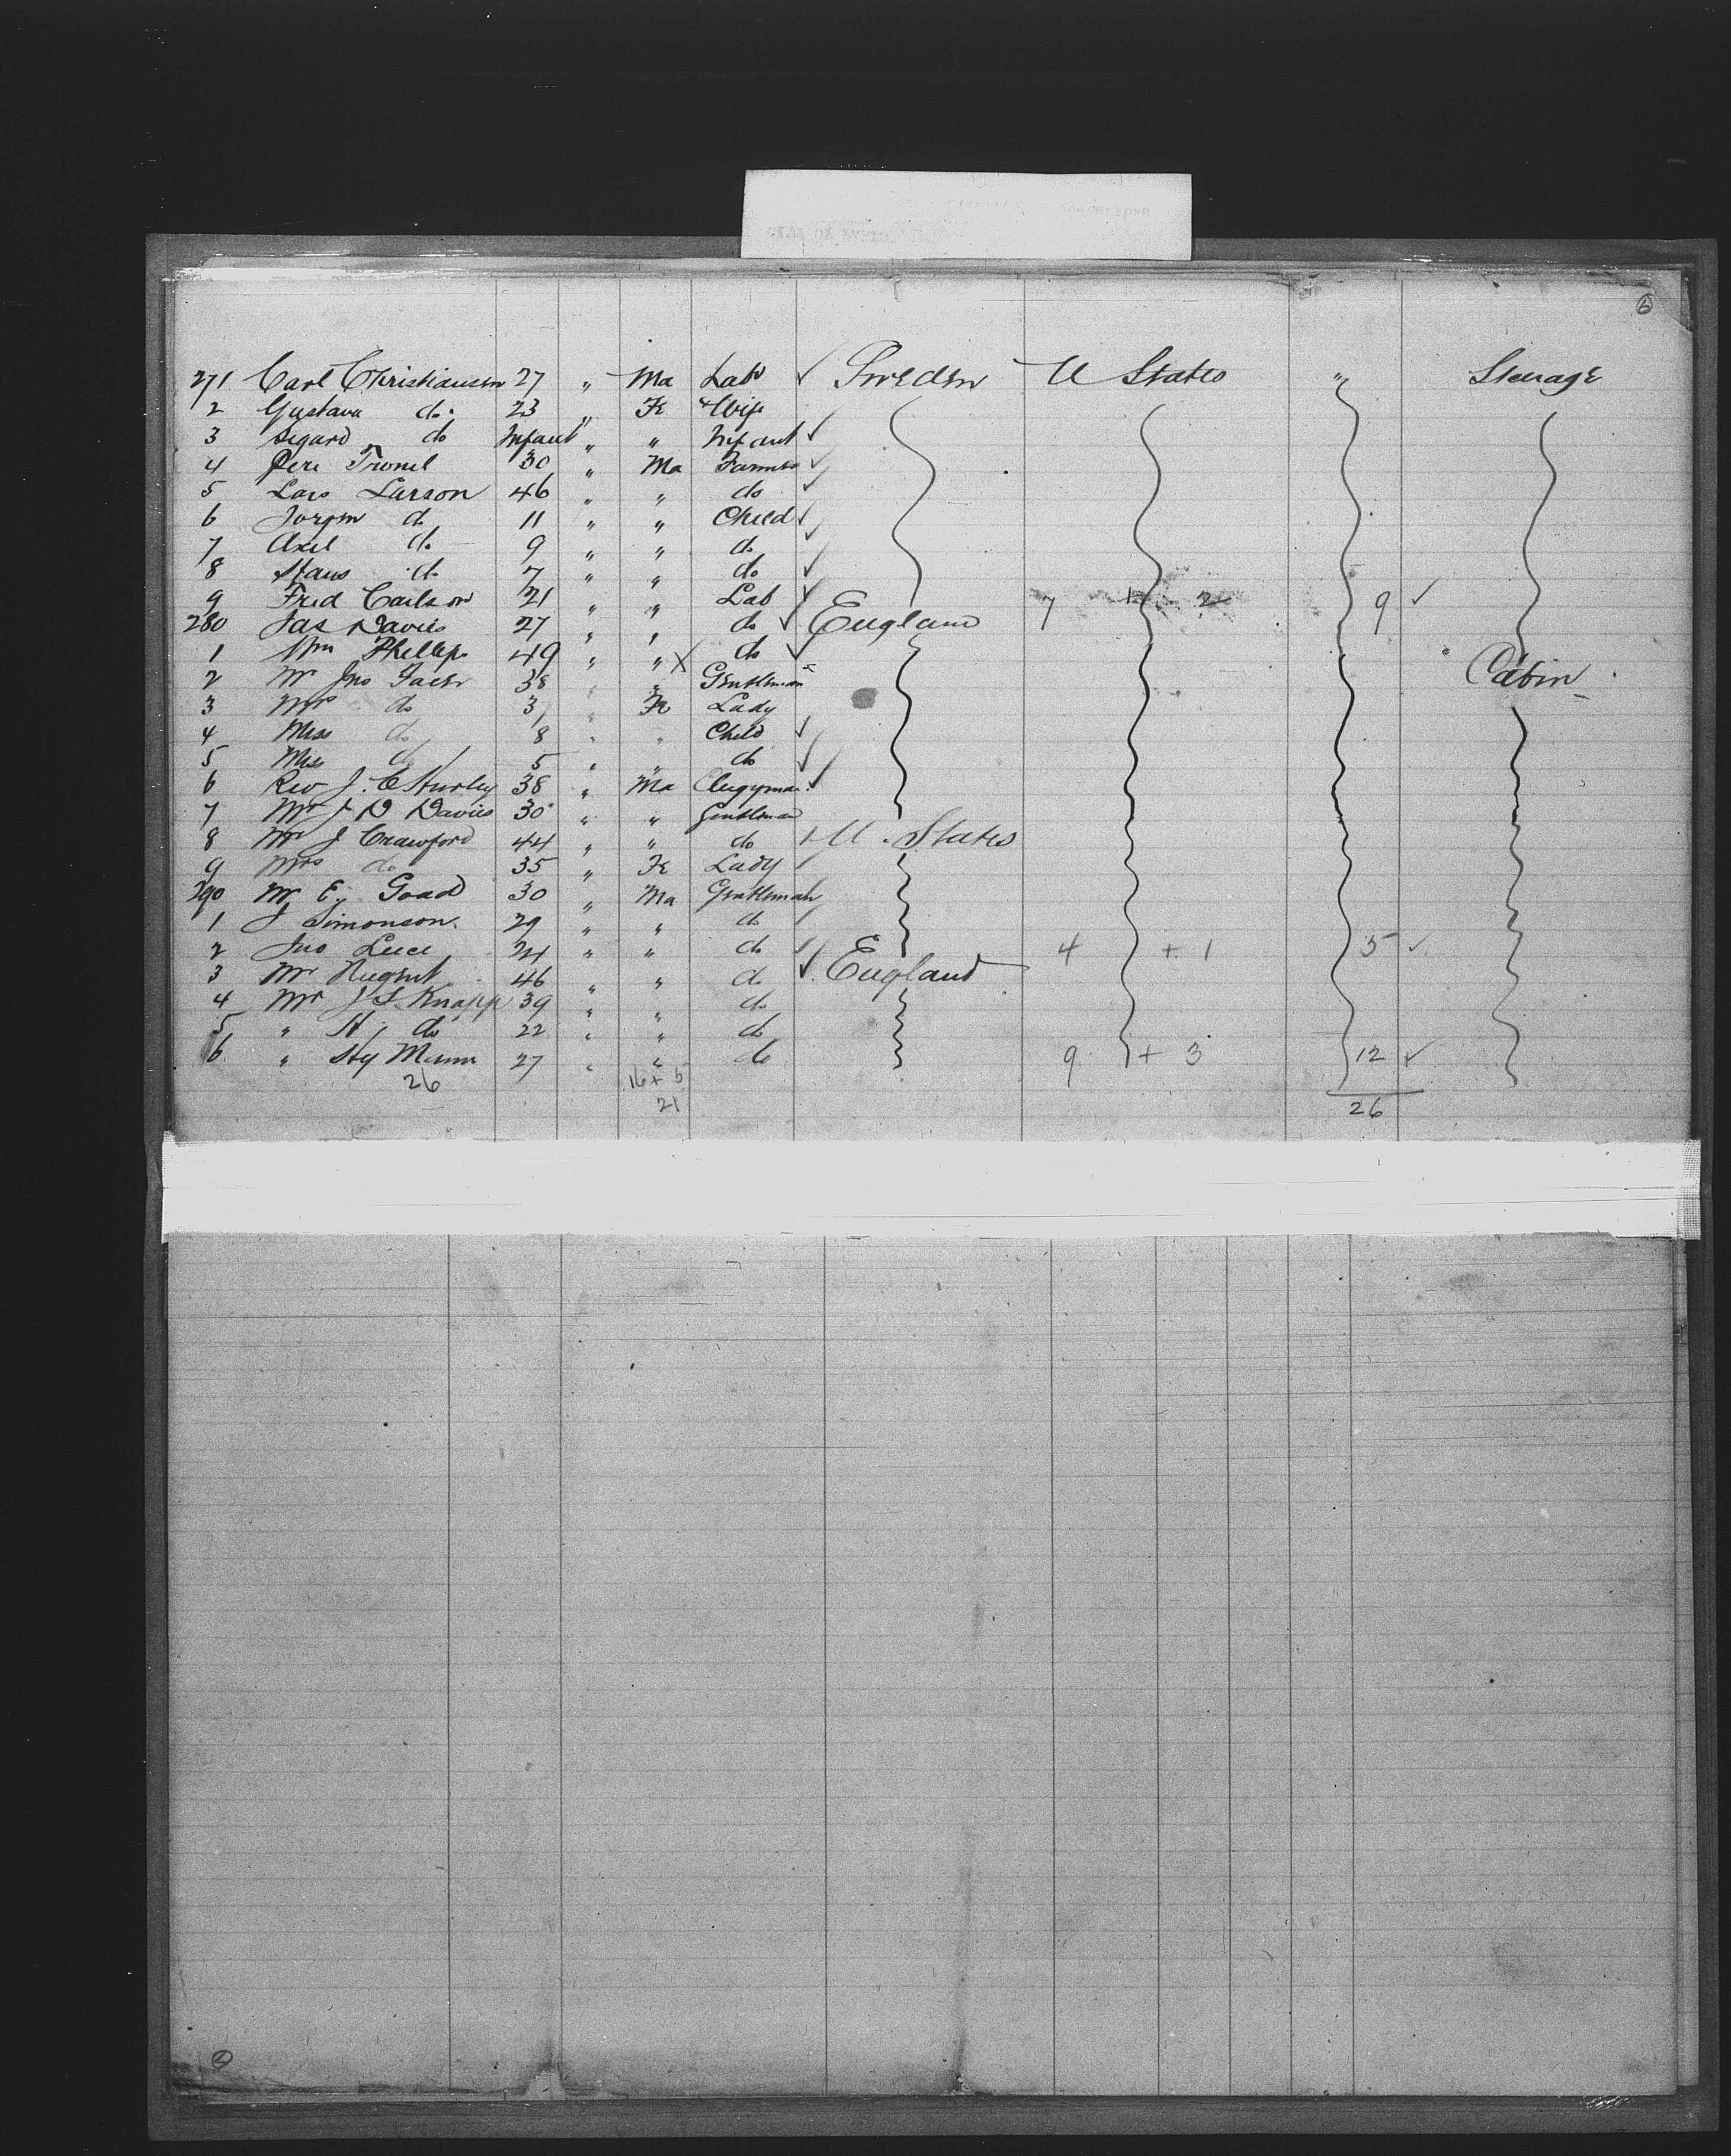 6
271 Carl Christiansen 27 " Ma Lab ✓ Sweden U States " Steerage
2 Gustava do. 23 " Fe Wife
3 Sigard do Infant " " Infant ✓
4 Pere 30 " Ma Farmer ✓
5 Lars Larson 46 " " do ✓
6 Jorgen do 11 " " Child ✓
7 Axel do 9 " " do ✓
8 do 7 " " do ✓
9 Fred Carlson 21 " " Lab ✓ 7 + 2 9 ✓
280 Jas Davies 27 " " do ✓ England
1 Wm Phillips 49 " " X do ✓
2 Mr Jno 38 " " Gentleman Cabin
3 Mrs do 31 " Fe Lady
4 Miss do 8 " " Child ✓
5 Miss do 5 " " do ✓
6 Rev J. C 38 " Ma Clergyman ✓
7 Mr J D Davies 30 " " Gentleman
8 Mr J Crawford 44 " " do + U. States
9 Mrs do 35 " Fe Lady
290 Mr E. Goad 30 " Ma Gentleman
1 J Simonson. 29 " " do
2 Jno Luce 24 " " do 4 + 1 5 ✓
3 Mr Nugent 46 " " do ✓ England
4 Mr J S Knapp 39 " " do
5 " H do 22 " " do
6 " Hy 27 " " do 9 + 3 12 ✓
26 16 + 5 26
21